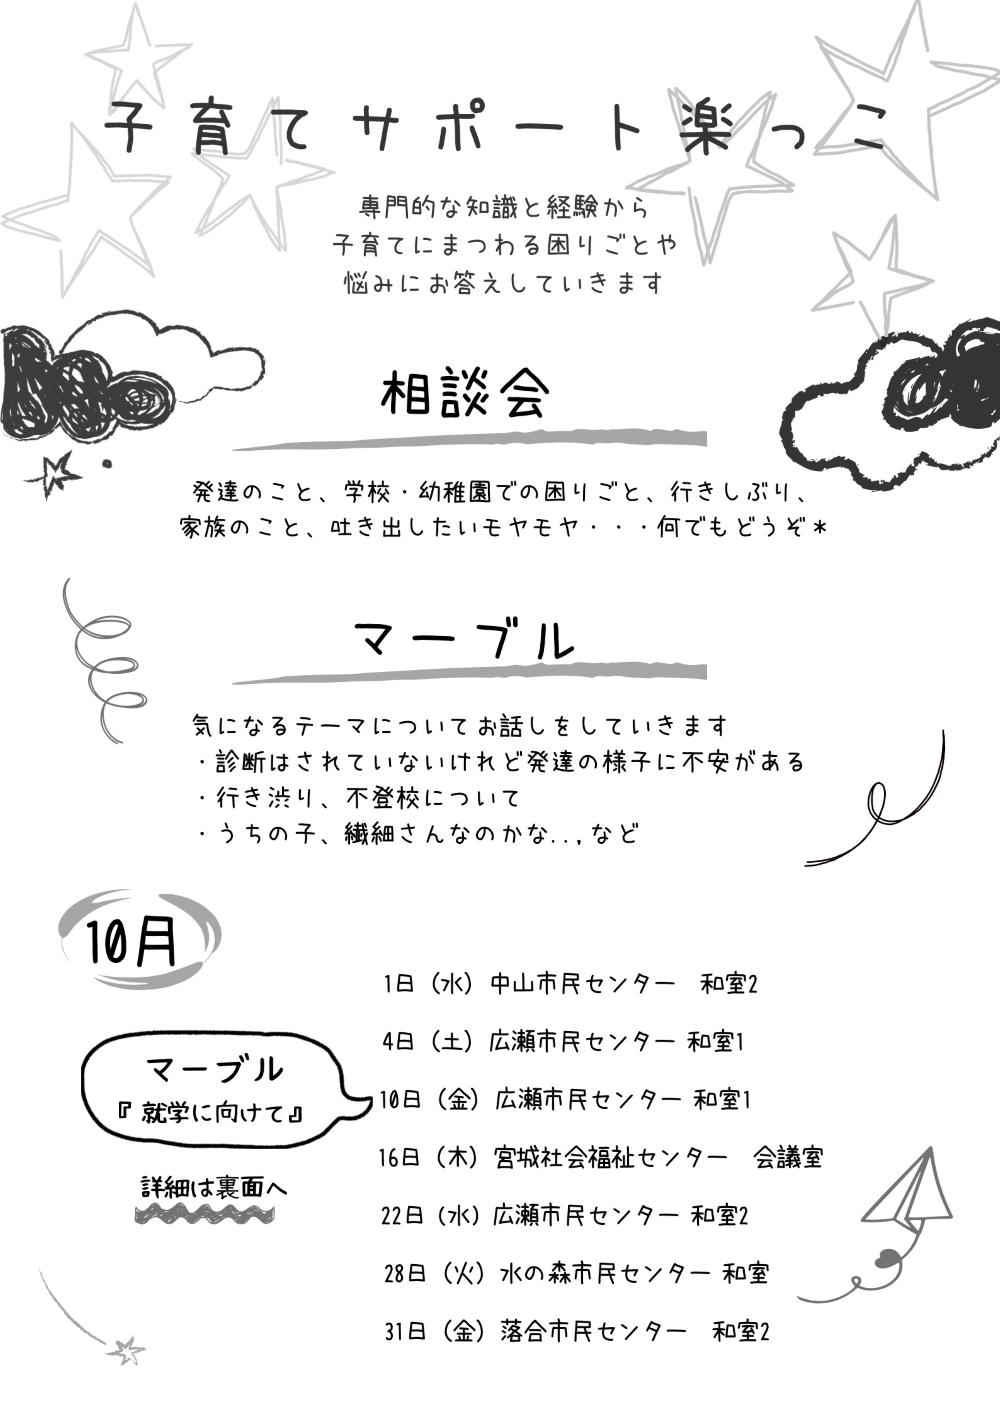 子育てサポート楽っこ
専門的な知識と経験から
子育てにまつわる困りごとや
悩みにお答えしていきます
相談会
発達のこと、学校・幼稚園での困りごと、行きしぶり、
家族のこと、吐き出したいモヤモヤ・・・何でもどうぞ＊
マーブル
気になるテーマについてお話しをしていきます
・診断はされていないけれど発達の様子に不安がある
・行き渋り、不登校について
・うちの子、繊細さんなのかな..,など
10月
1日（水）中山市民センター　和室2
4日（土）広瀬市民センター 和室1
マーブル
『就学に向けて』
10日（金）広瀬市民センター 和室1
16日（木）宮城社会福祉センター　会議室
詳細は裏面へ
22日（水）広瀬市民センター 和室2
28日（火）水の森市民センター 和室
31日（金）落合市民センター　和室2